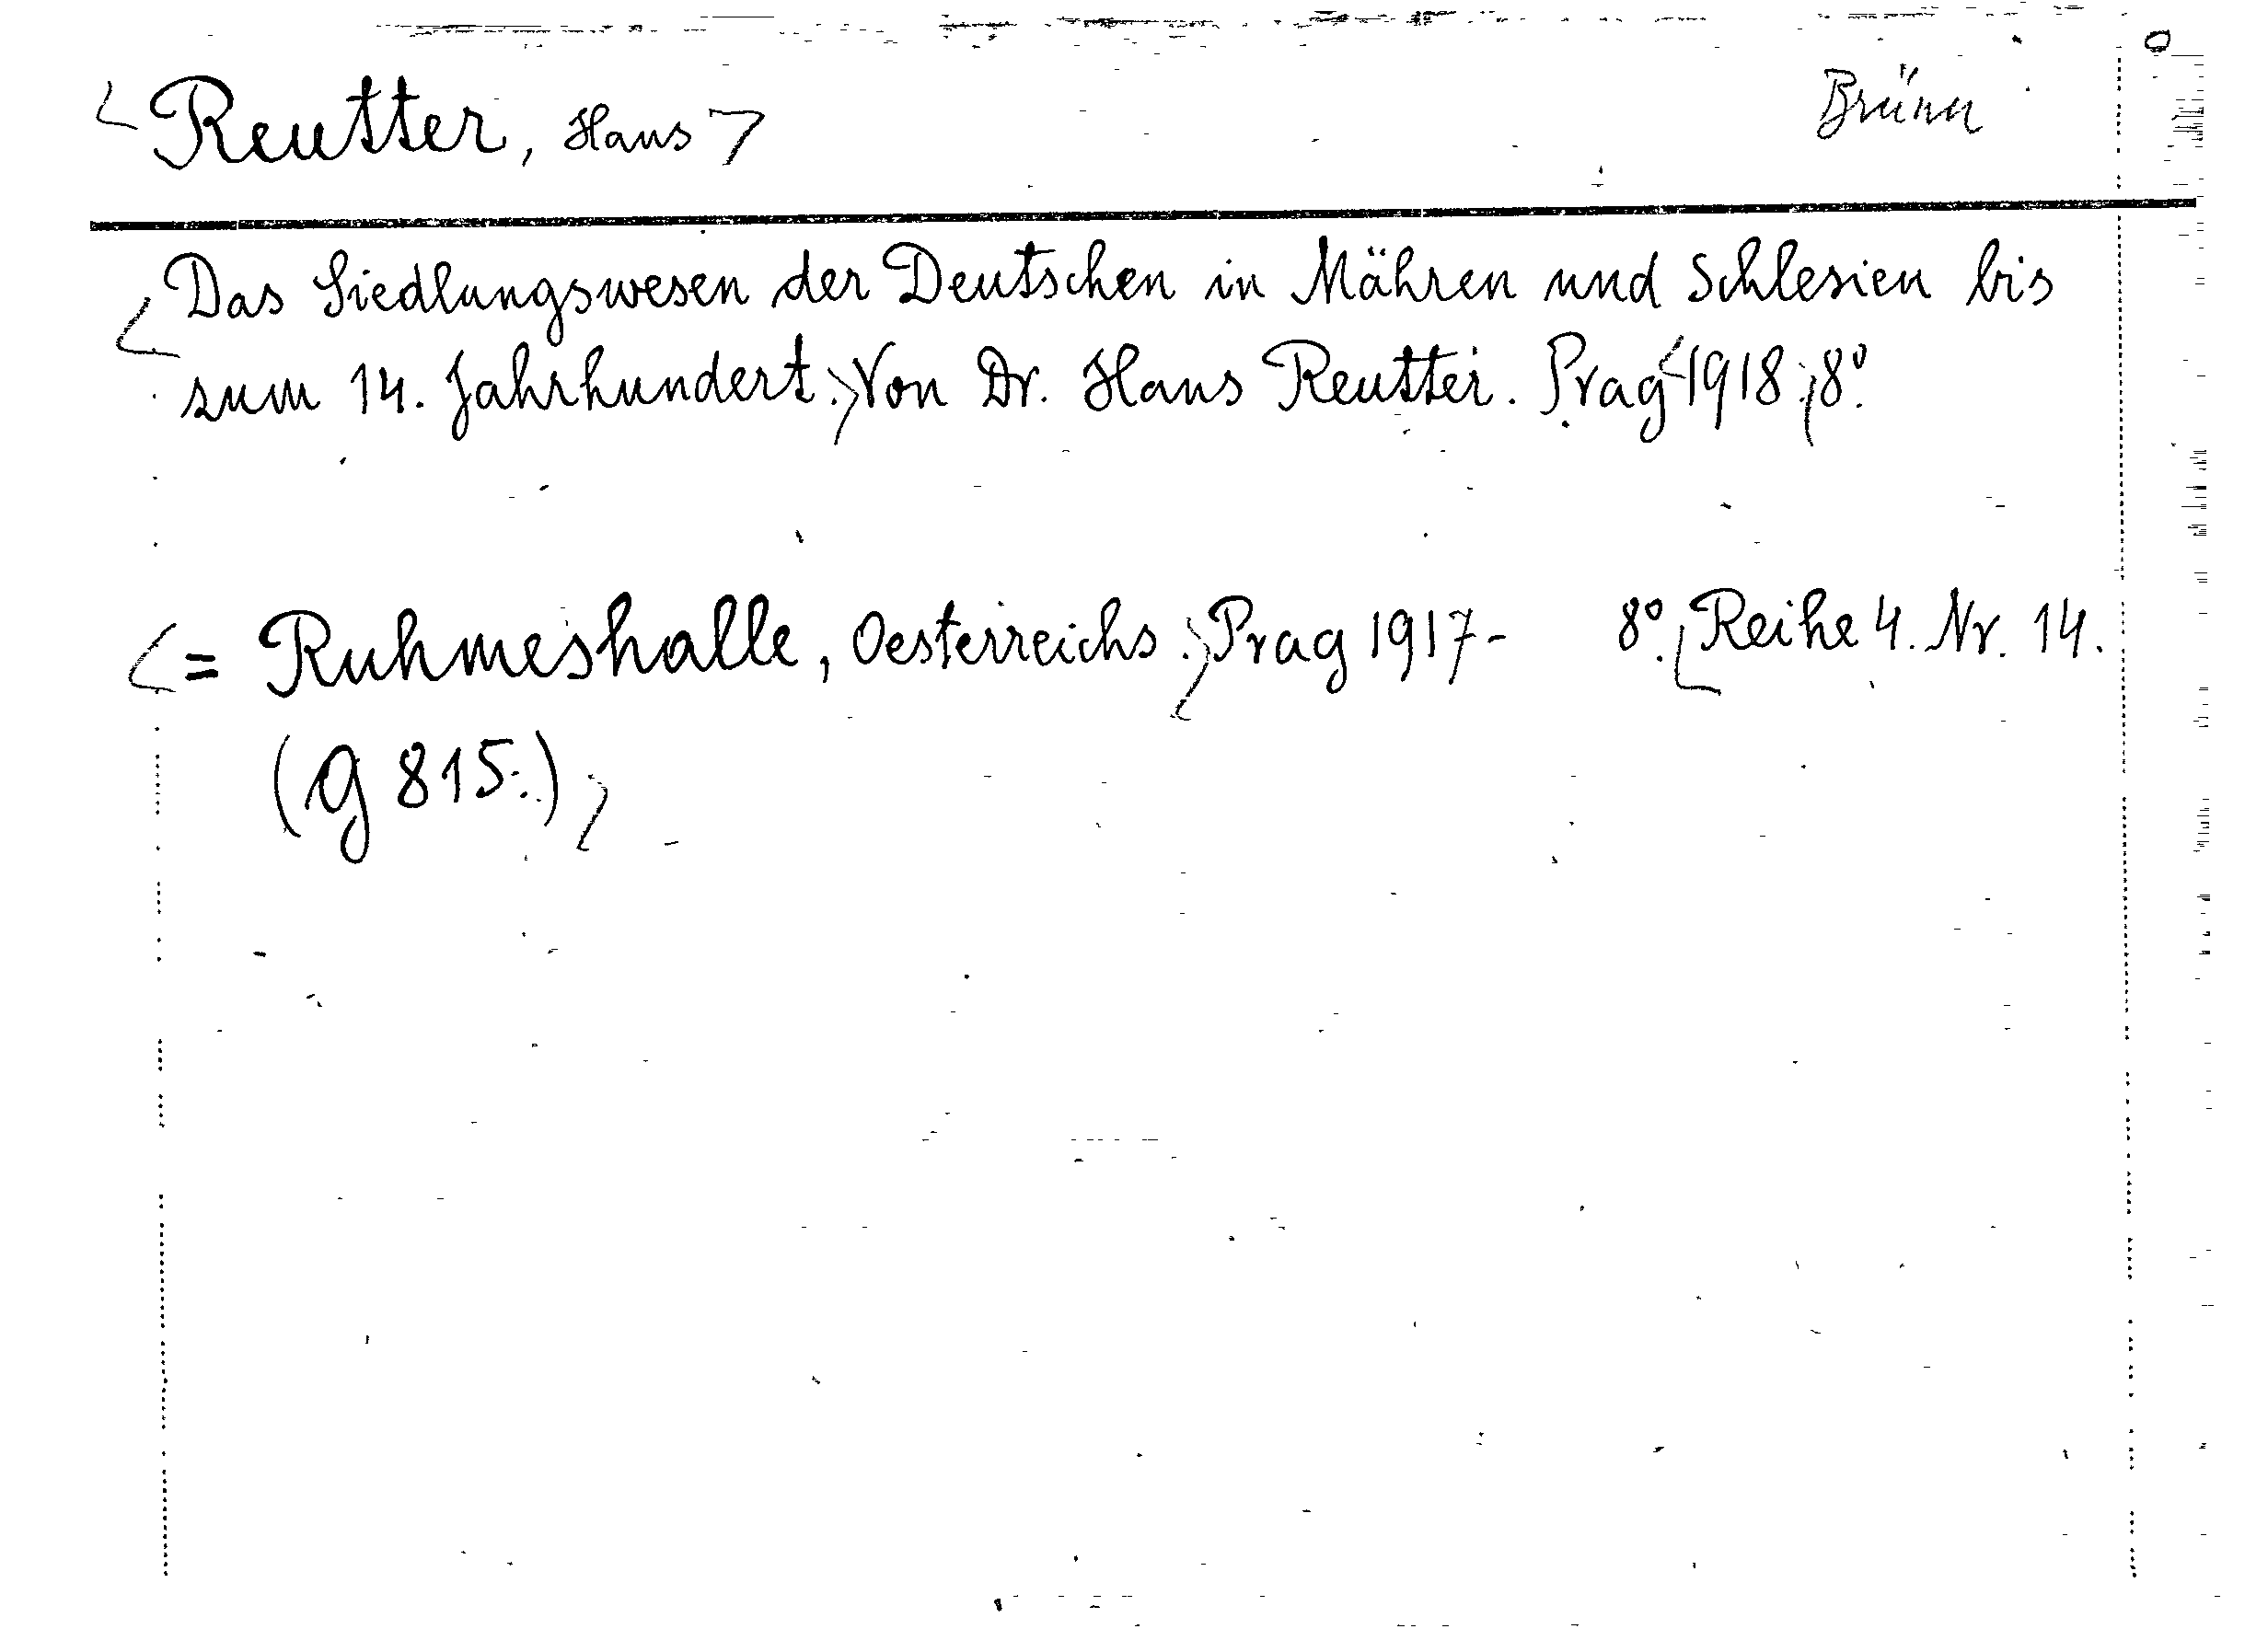 Reutter, Hans Brünn
Das Siedlungswesen der Deutschen in Mähren und Schlesien bis
zum 14. Jahrhundert. Von Dr. Hans Reutter. Prag 1918. 8°.
= Ruhmeshalle, Oesterreichs. Prag 1917- 8°. Reihe 4. Nr. 14.
(g 815.)